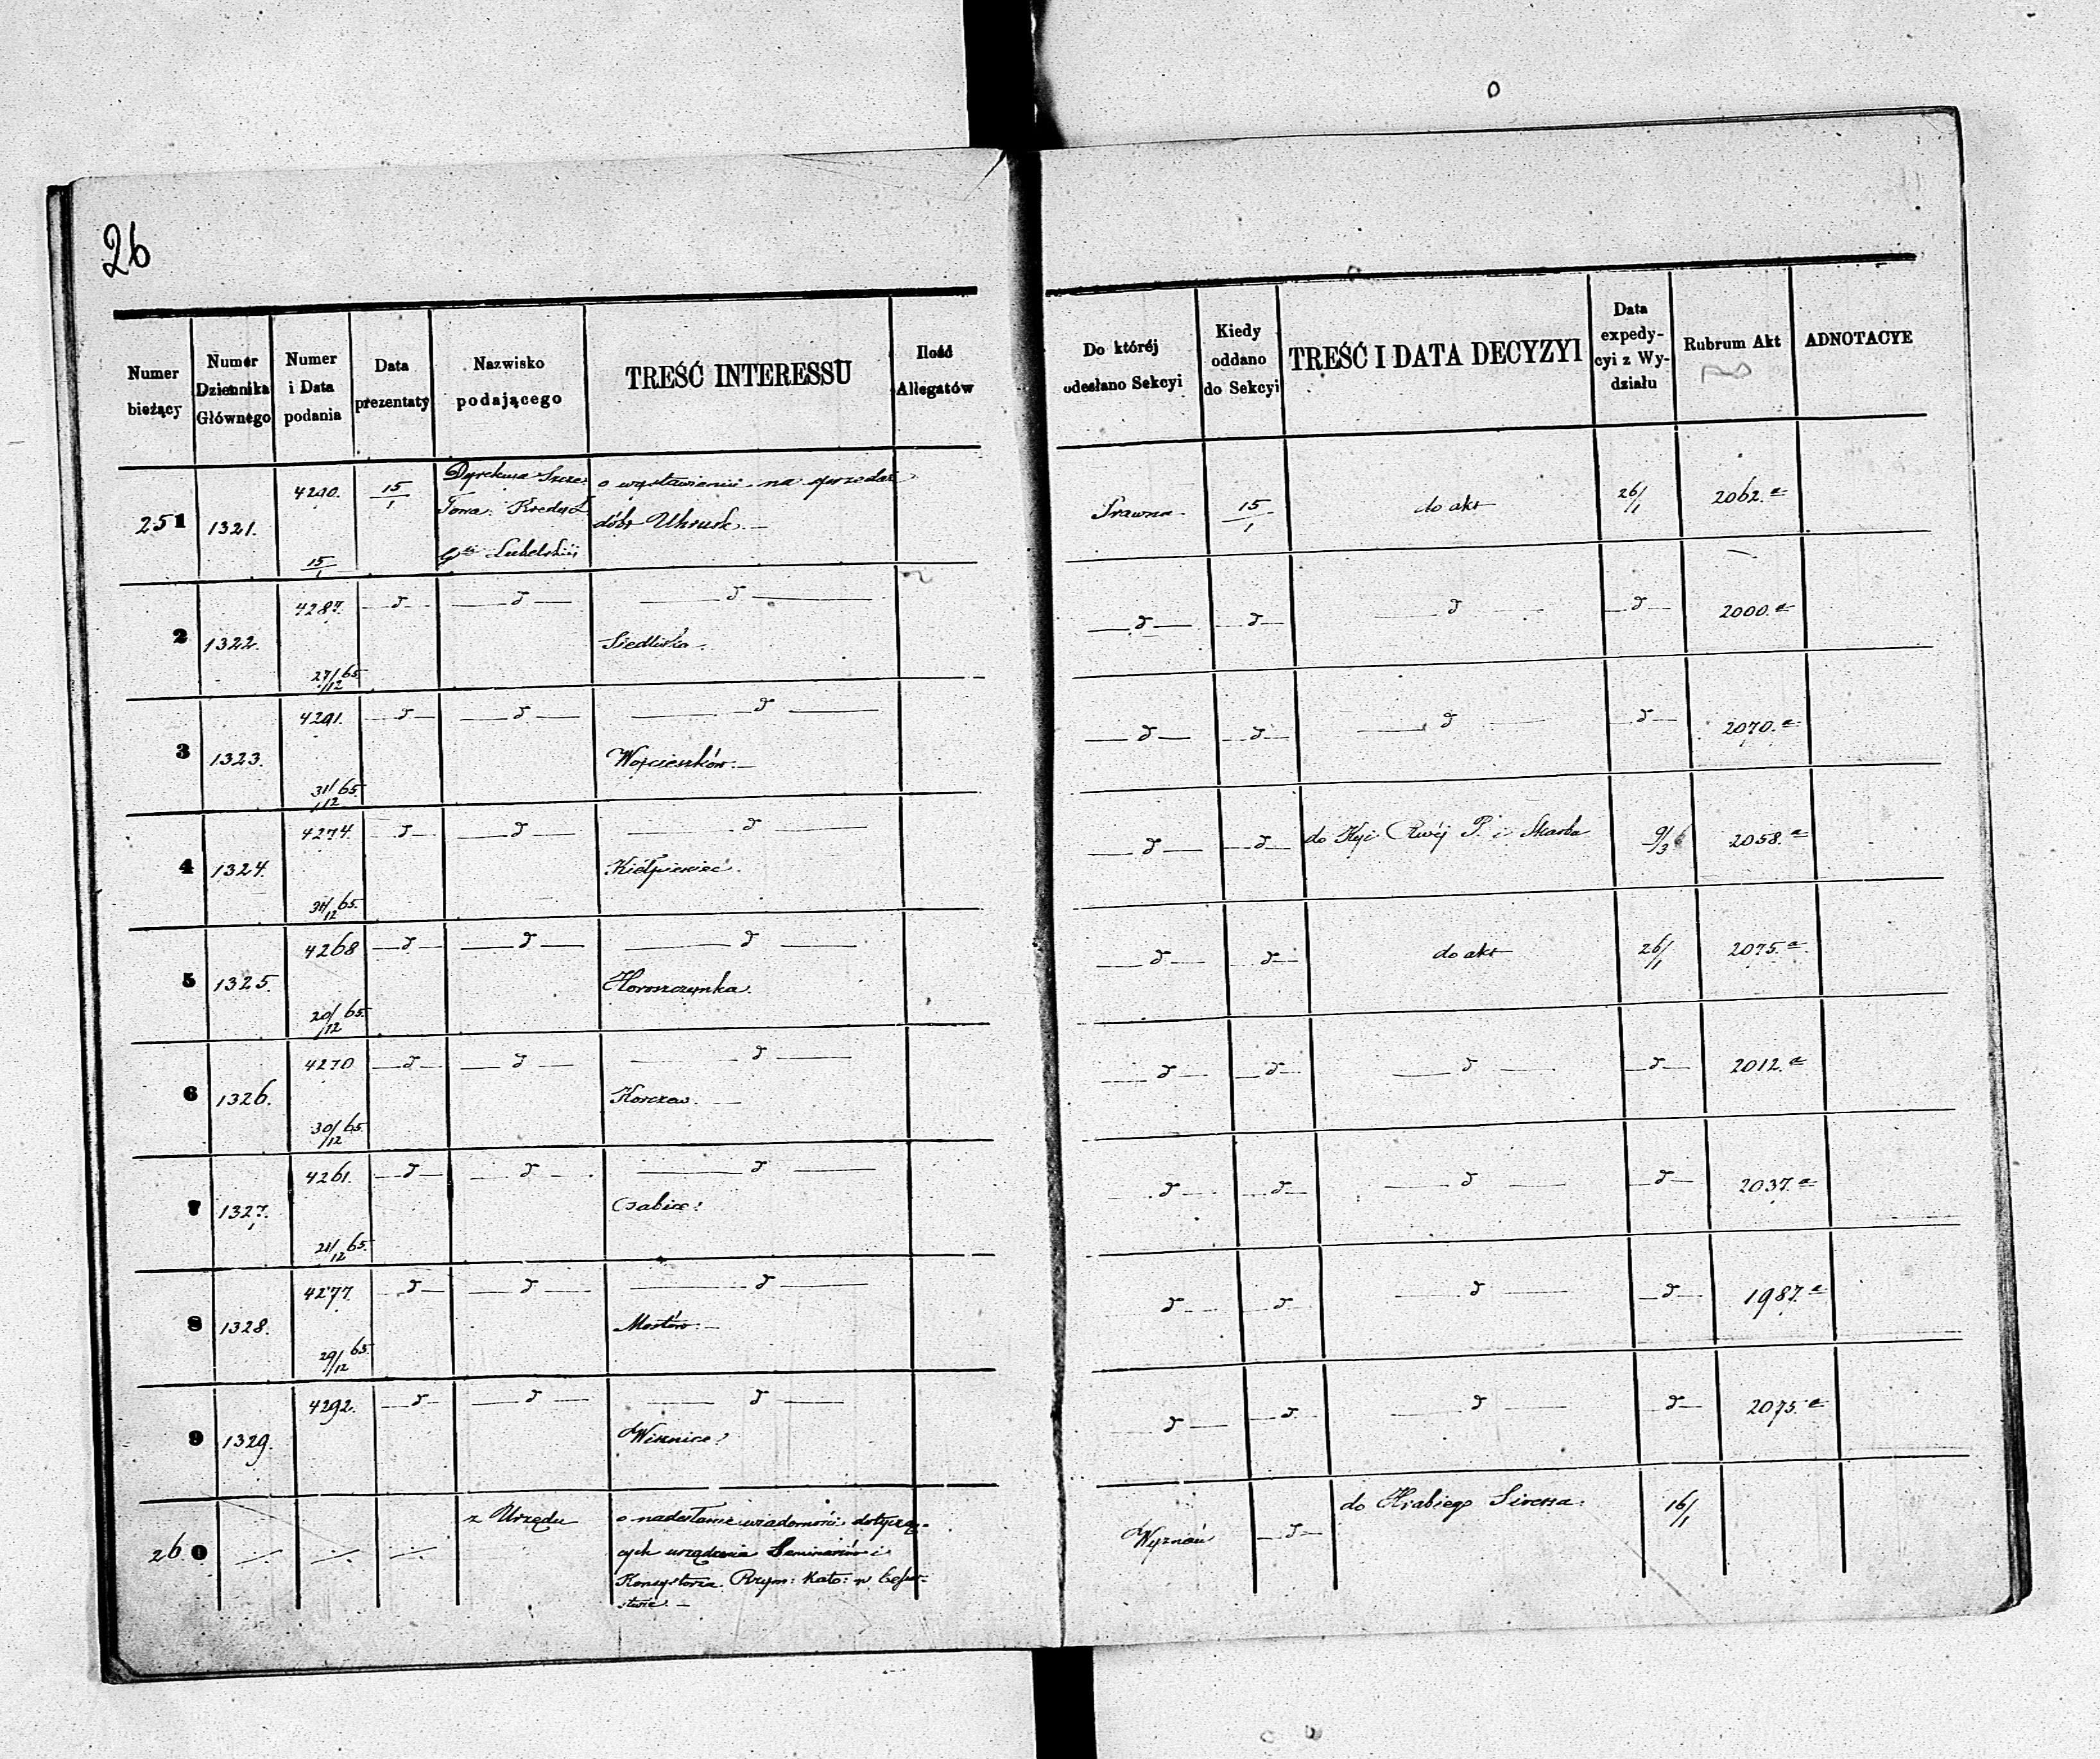 26
Numer bieżący
Numer Dziennika Głównego
Numer i Data podania
Data prezentaty
Nazwisko podającego
TREŚĆ INTERESSU
Ilość Allegatów
Do któréj odesłano Sekcyi
Kiedy oddano do Sekcyi
TREŚĆ I DATA DECYZYI
Data expedycyi z Wydziału
Rubrum Akt
ADNOTACYE
251 1321. 4290. 15/1 15/1 Dyrekcya Szcze: Towa: Kredyt Lubelskiéj o wystawieniu na sprzedaż dóbr Uhrusk. Prawna 15/1 do akt 26/1 2062.a
2 1322. 4287. 27/12 65 d d d Siedliska. d d d d 2000.a
3 1323. 4291. 31/12 65 d d d Wojcieszków. d d d d 2070.a
4 1324. 4274. 31/12 65. d d d Kiełpieniec. d d do P. i Skarbu 9/3 6 2058.a
5 1325. 4268 20/12 65. d d d Horoszczynka. d d do akt 26/1 2075.a
6 1326. 4270 30/12 65 d d d Korczew. d d d d 2012.a
7 1327. 4261. 21/12 65. d d d d d d d 2037.a
8 1328. 4277. 29/12 65. d d d Mostów. d d d d 1987.a
9 1329. 4292. d d d Wisznice. d d d d 2075.a
260 z Urzędu o nadesłanie wiadomości dotyczących urządzenia Seminariów i Konsystorza Rzym: Kato: w Cesarstwie. Wyznań d do Hrabiego Siversa. 16/1